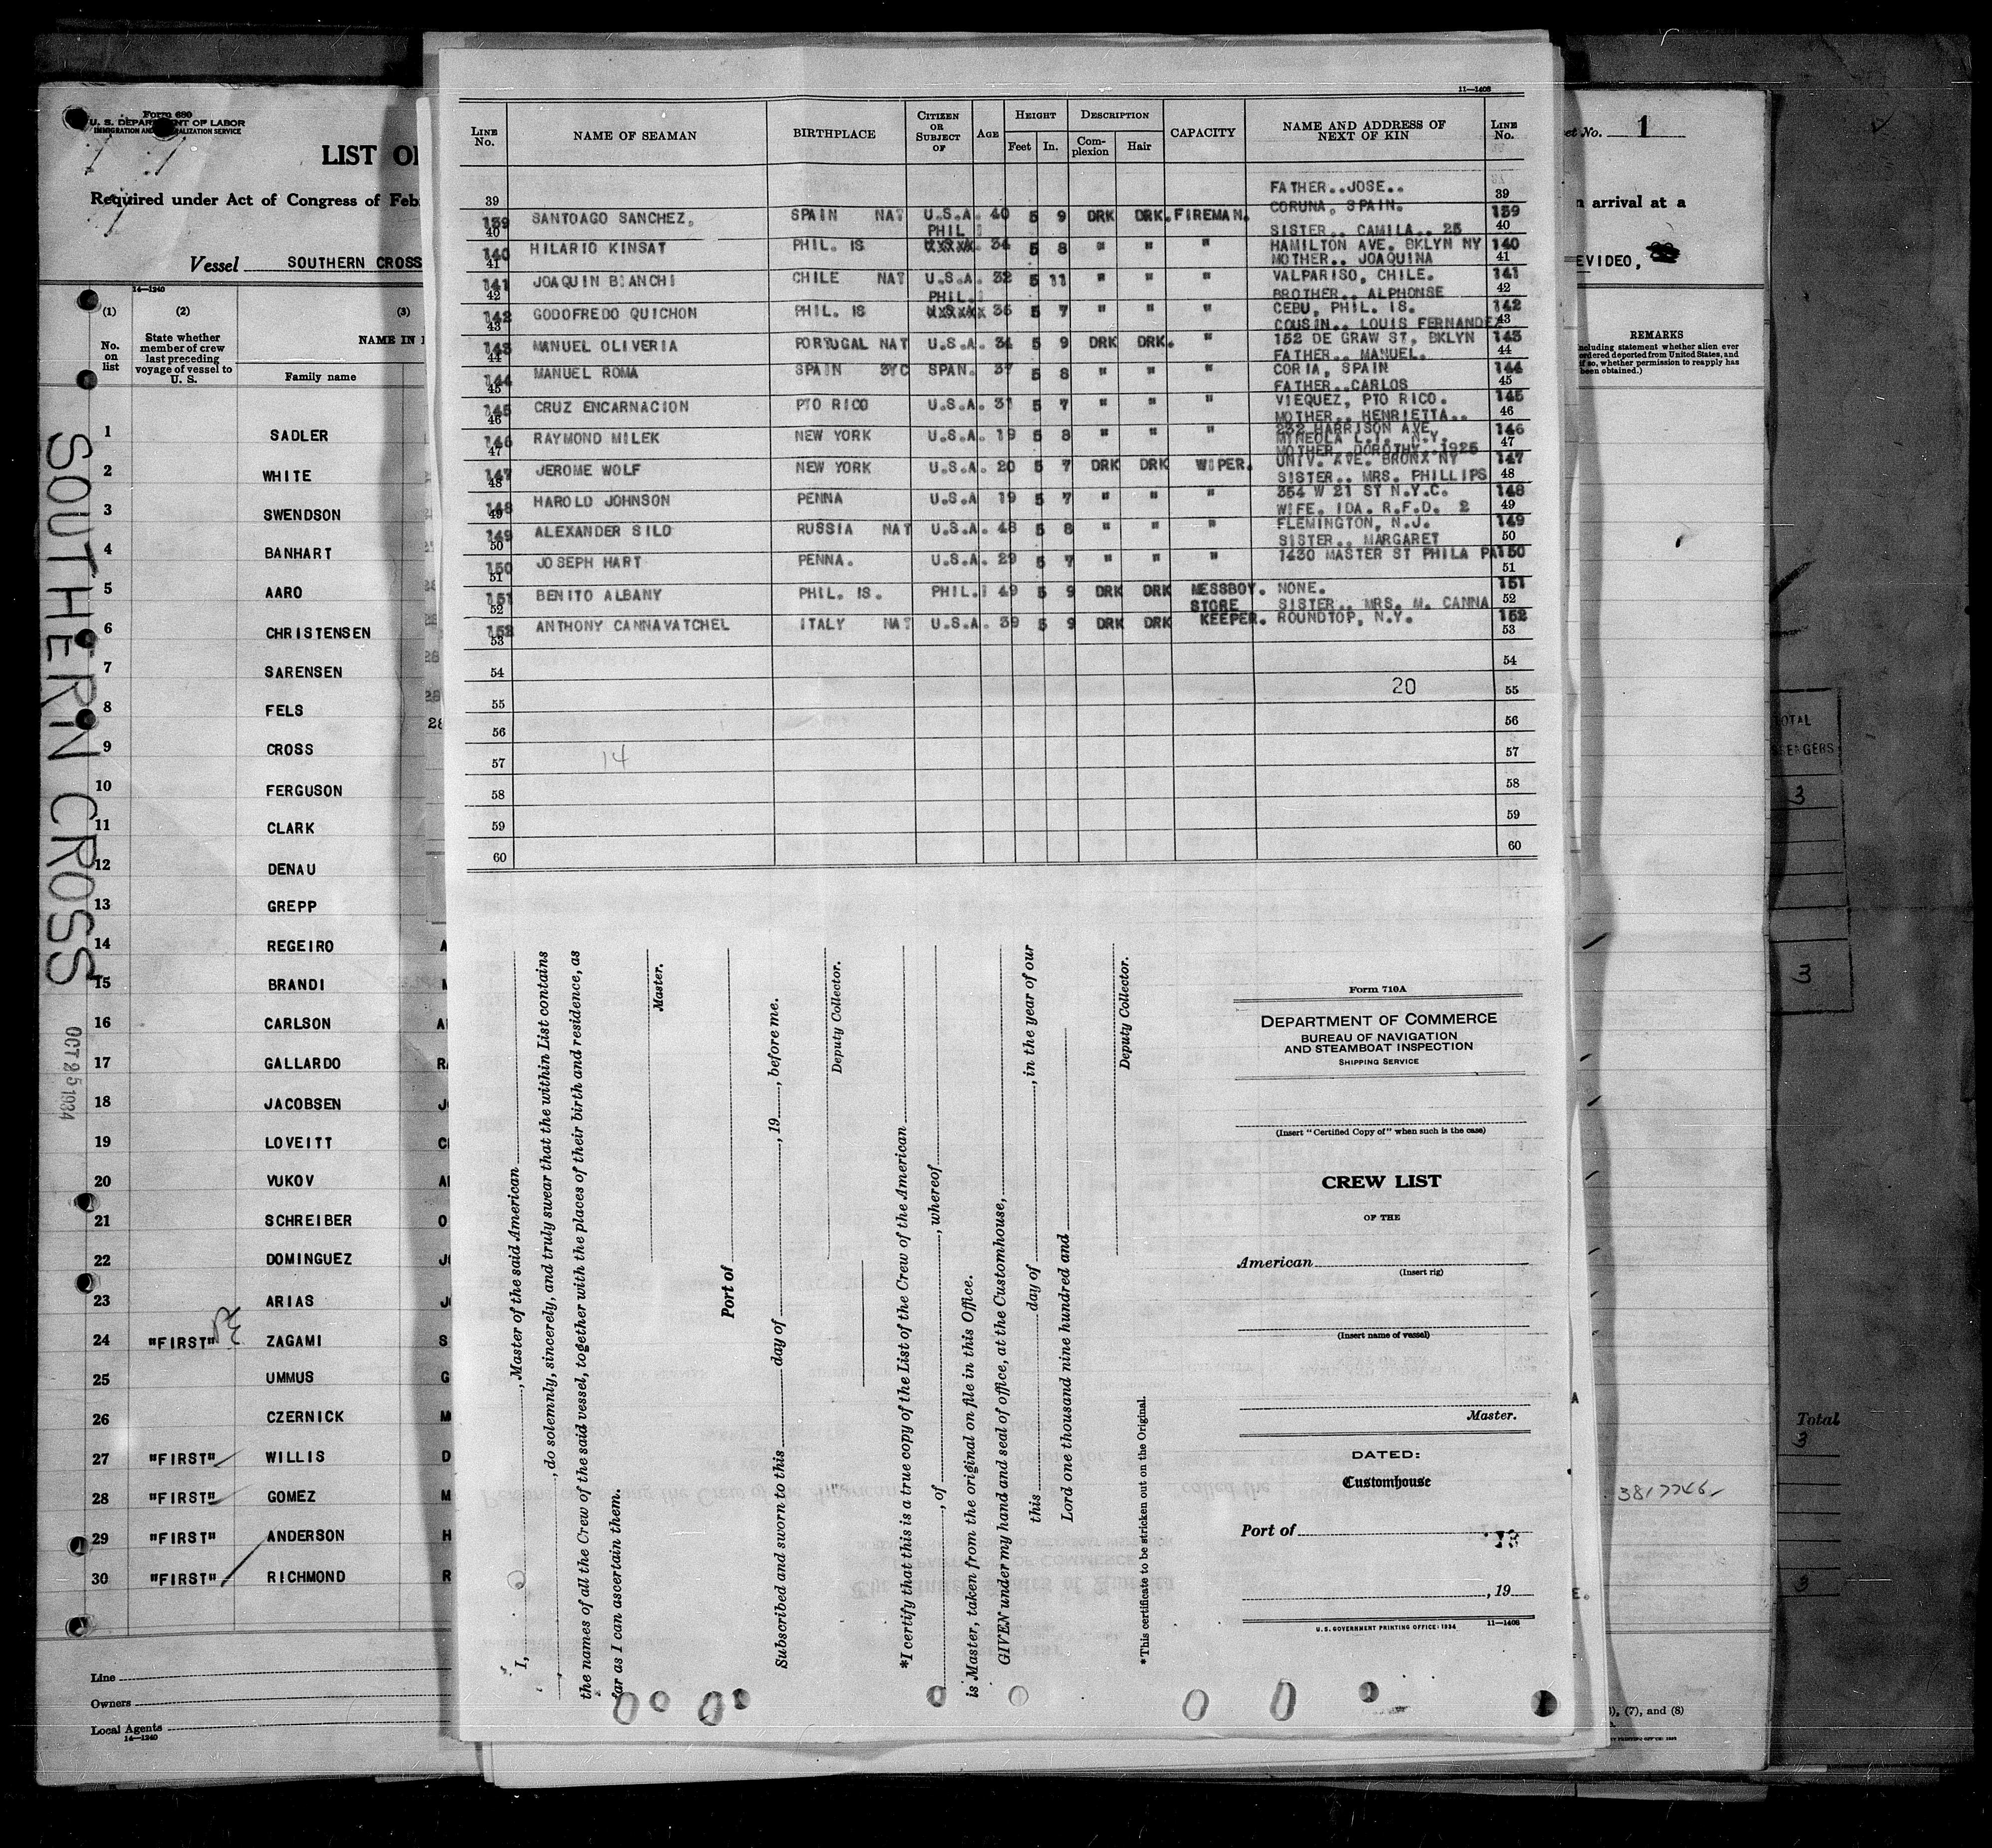 Form 680
U. S. DEPARTMENT OF LABOR
IMMIGRATION AND NATURALIZATION SERVICE
LIST OF
Required under Act of Congress of Feb
Vessel SOUTHERN CROSS
14—1240
(1) (2) (3)
No. on list
State whether member of crew last preceding voyage of vessel to U. S.
NAME IN
Family name
1 SADLER
2 WHITE
3 SWENDSON
4 BANHART
5 AARO
6 CHRISTENSEN
7 SARENSEN
8 FELS
9 CROSS
10 FERGUSON
11 CLARK
12 DENAU
13 GREPP
14 REGEIRO A
15 BRANDI M
16 CARLSON
17 GALLARDO RA
18 JACOBSEN JO
19 LOVEITT
20 VUKOV
21 SCHREIBER O
22 DOMINGUEZ
23 ARIAS
24 "FIRST" ZAGAMI S
25 UMMUS G
26 CZERNICK M
27 "FIRST" WILLIS D
28 "FIRST" GOMEZ M
29 "FIRST" ANDERSON H
30 "FIRST" RICHMOND R
Line
Owners
Local Agents
14—1240
SOUTHERN CROSS
OCT 25 1934
11—1408
LINE No. NAME OF SEAMAN BIRTHPLACE CITIZEN OR SUBJECT OF AGE HEIGHT DESCRIPTION CAPACITY NAME AND ADDRESS OF NEXT OF KIN LINE No.
Feet In. Complexion Hair
39 FATHER..JOSE.. 39
139 SANTOAGO SANCHEZ. SPAIN NAT U.S.A. 40 5 9 DRK DRK. FIREMAN. CORUNA, SPAIN. 139
40 PHIL SISTER.. CAMILA.. 25 40
140 HILARIO KINSAT PHIL. IS 34 5 8 " " " HAMILTON AVE. BKLYN NY 140
41 MOTHER.. JOAQUINA 41
141 JOAQUIN BIANCHI CHILE NAT U.S.A. 32 5 11 " " " VALPARISO, CHILE. 141
42 PHIL. BROTHER.. ALPHONSE 42
142 GODOFREDO QUICHON PHIL. IS 36 5 7 " " " CEBU, PHIL. IS. 142
43 COUSIN.. LOUIS FERNANDEZ 43
143 MANUEL OLIVERIA PORTUGAL NAT U.S.A. 34 5 9 DRK DRK. " 152 DE GRAW ST, BKLYN 143
44 FATHER.. MANUEL. 44
144 MANUEL ROMA SPAIN 3YC SPAN. 37 5 8 " " " CORIA, SPAIN 144
45 FATHER..CARLOS 45
145 CRUZ ENCARNACION PTO RICO U.S.A. 31 5 7 " " " VIEQUEZ, PTO RICO. 145
46 MOTHER.. HENRIETTA.. 46
146 RAYMOND MILEK NEW YORK U.S.A. 19 5 8 " " " 232 HARRISON AVE 146
MINEOLA L.I. N.Y.
47 MOTHER. DOROTHY..1925 47
147 JEROME WOLF NEW YORK U.S.A. 20 5 7 DRK DRK WIPER. UNIV. AVE. BRONX NY 147
48 SISTER.. MRS. PHILLIPS 48
148 HAROLD JOHNSON PENNA U.S.A 19 5 7 " " " 354 W 21 ST N.Y.C. 148
49 WIFE. IDA. R.F.D. 2 49
149 ALEXANDER SILO RUSSIA NAT U.S.A. 48 5 8 " " " FLEMINGTON, N.J. 149
50 SISTER.. MARGARET 50
150 JOSEPH HART PENNA. U.S.A. 29 5 7 " " " 1430 MASTER ST PHILA PA 150
51 51
151 BENITO ALBANY PHIL. IS. PHIL. 49 5 9 DRK DRK MESSBOY. NONE. 151
52 STORE SISTER.. MRS. M. CANNA 52
152 ANTHONY CANNAVATCHEL ITALY NAT U.S.A. 39 5 9 DRK DRK KEEPER. ROUNDTOP, N.Y. 152
53 53
54 54
20
55 55
56 56
14
57 57
58 58
59 59
60 60
I, , Master of the said American
, do solemnly, sincerely, and truly swear that the within List contains
the names of all the Crew of the said vessel, together with the places of their birth and residence, as
far as I can ascertain them.
Master.
Port of
Subscribed and sworn to this day of , 19 , before me.
Deputy Collector.
*I certify that this is a true copy of the List of the Crew of the American
, of , whereof
is Master, taken from the original on file in this Office.
GIVEN under my hand and seal of office, at the Customhouse,
this day of , in the year of our
Lord one thousand nine hundred and
Deputy Collector.
*This certificate to be stricken out on the Original.
Form 710A
DEPARTMENT OF COMMERCE
BUREAU OF NAVIGATION
AND STEAMBOAT INSPECTION
SHIPPING SERVICE
(Insert "Certified Copy of" when such is the case)
CREW LIST
OF THE
American
(Insert rig)
(Insert name of vessel)
Master.
DATED:
Customhouse
Port of
13
, 19
U. S. GOVERNMENT PRINTING OFFICE: 1934 11—1408
et No. 1
n arrival at a
EVIDEO,
REMARKS
(Including statement whether alien ever
ordered deported from United States, and
if so, whether permission to reapply has
been obtained.)
A
E.
, (7), and (8)
OTAL
3
3
Total
3
3